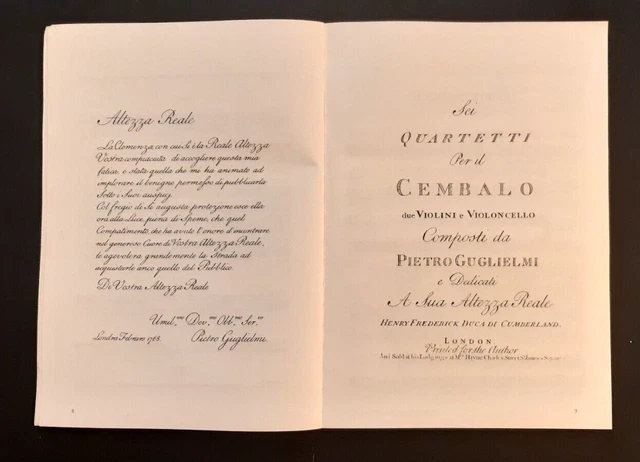 Altezza Reale
La Clemenza con cui si è la Reale Altezza
Vostra compiaciuta di accogliere questa mia
fatica, è stata quella che me ha animato ad
implorare il benegno permesso di pubblicarla
Sotto i Suoi auspicj.
Col fregio di Si augusta protezione esce ella
ora alla Luce, piena di Speme, che quel
Compatimento, che ha avuto l'onore d'incontrare
nel generoso Cuore di Vostra Altezza Reale,
le agevolera grandemente la Strada ad
acquistarle anco quello del Pubblico.
Di Vostra Altezza Reale
Umil.mo Dev.mo Obb.mo Ser.re
Londra Febraro 1768. Pietro Guglielmi.
Sei
QUARTETTI
Per il
CEMBALO
due VIOLINI e VIOLONCELLO
Composti da
PIETRO GUGLIELMI
e Dedicati
A Sua Altezza Reale
HENRY FREDERICK DUCA DI CUMBERLAND.
LONDON
Printed for the Author
And Sold at his Lodgings at Mrs Charles Street St James's Square